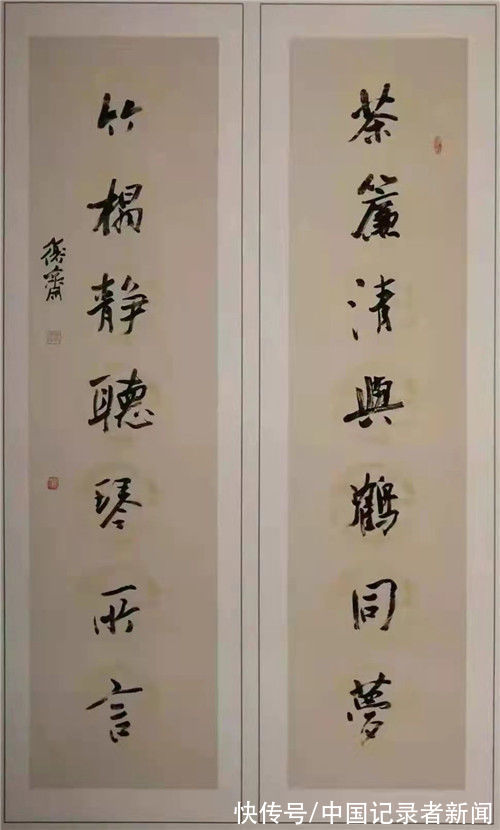 茶簾清與鶴同夢
竹榻静聽琴所言
快传号/中国记录者新闻